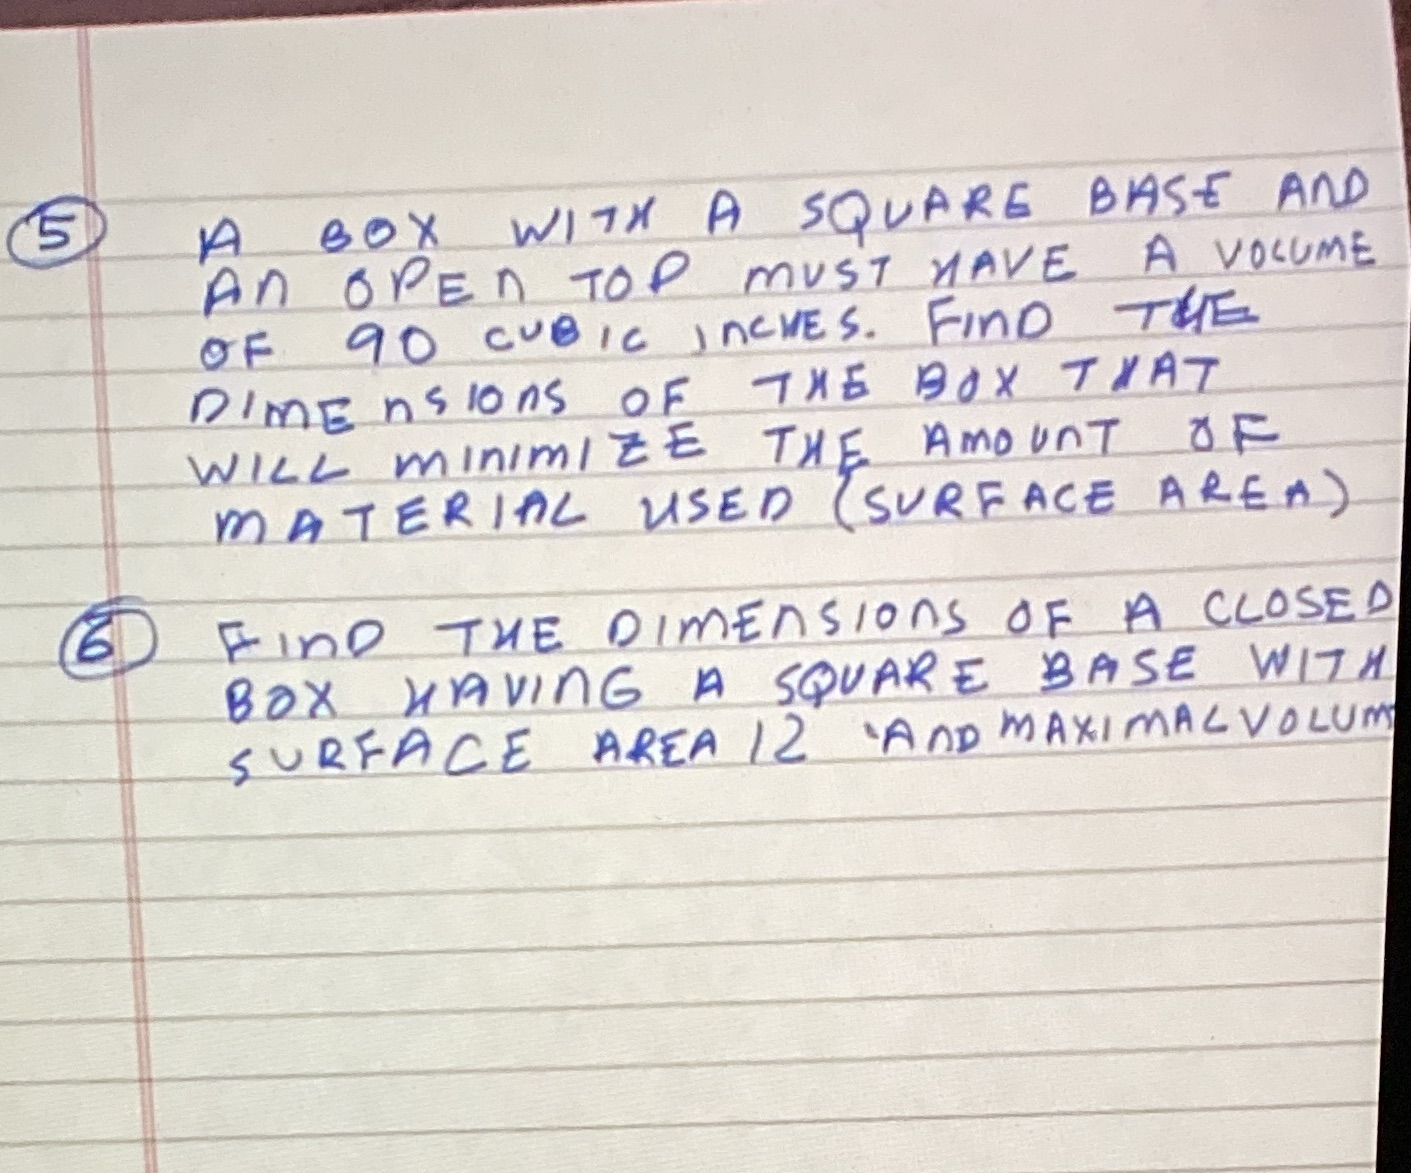 5 A BOX WITH A SQUARE BASE AND
AN OPEN TOP MUST HAVE A VOLUME
OF 90 CUBIC INCHES. FIND THE
DIMENSIONS OF THE BOX THAT
WILL MINIMIZE THE AMOUNT OF
MATERIAL USED (SURFACE AREA)
6 FIND THE DIMENSIONS OF A CLOSED
BOX HAVING A SQUARE BASE WITH
SURFACE AREA 12 AND MAXIMAL VOLUM